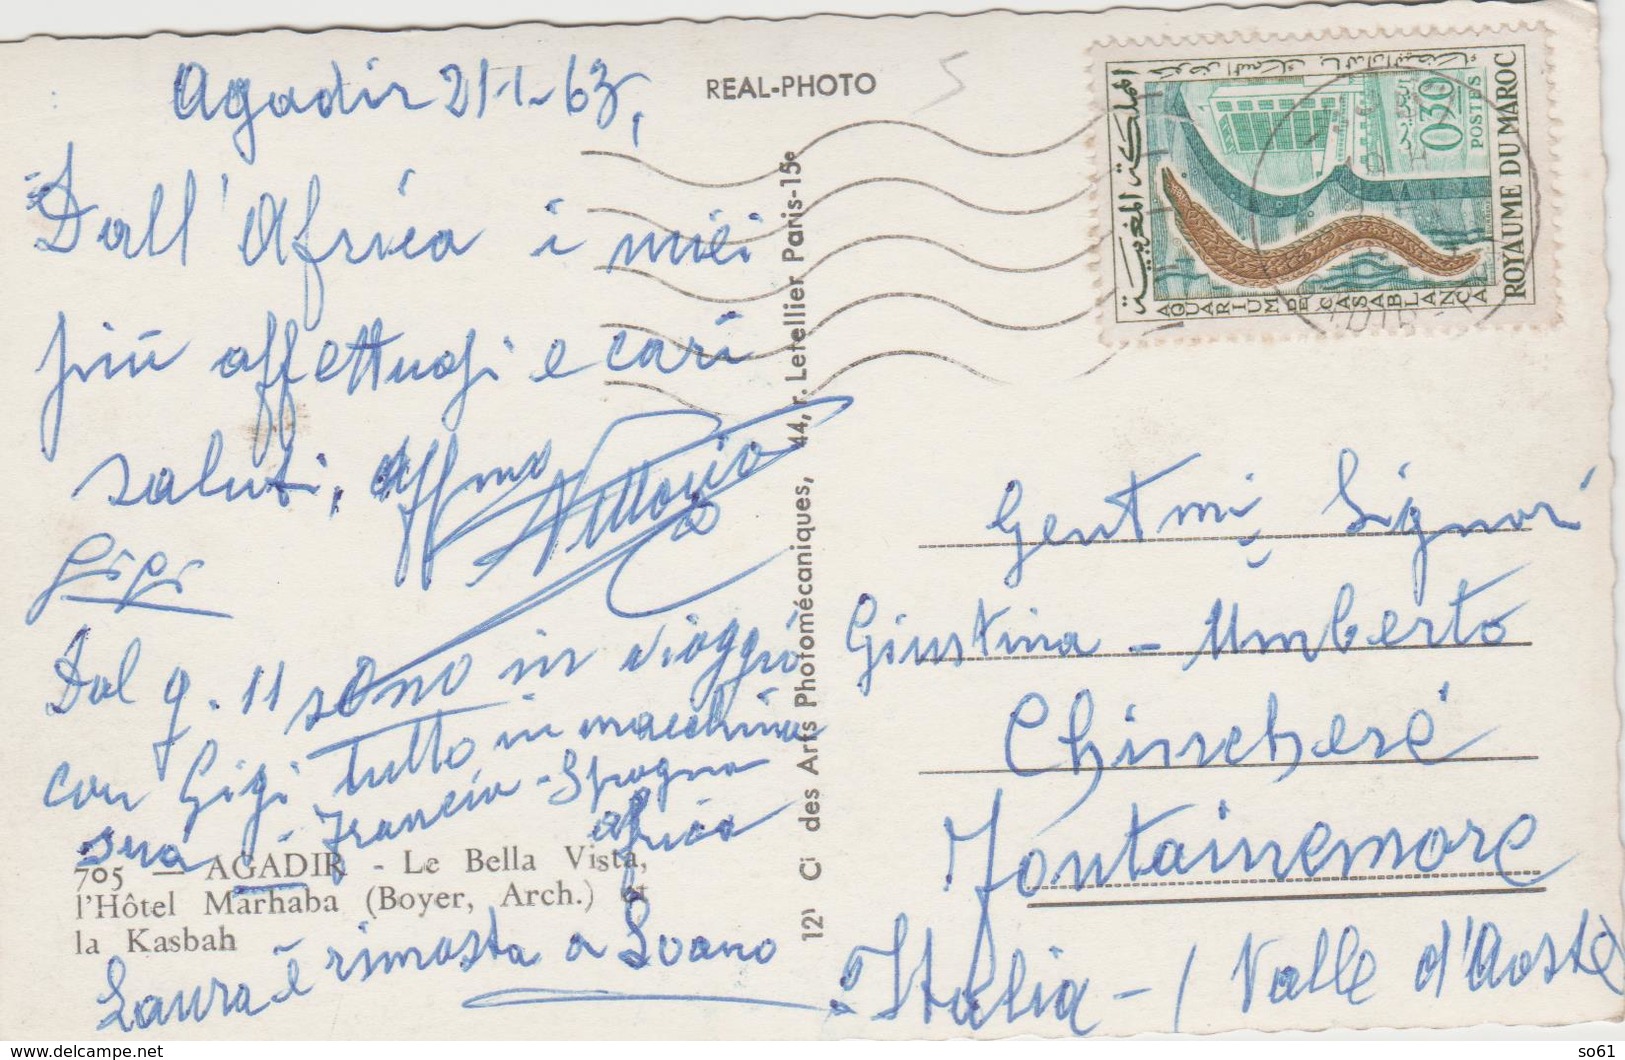 Agadir 21-1-63,
Dall'Africa i miei
più affettuosi e cari
saluti, Affmo
Vittorio
Gigi
Dal g. 11 sono in viaggio
con Gigi tutto in macchina
sua - Francia - Spagna
Africa
Laura è rimasta a Loano
705 — AGADIR - Le Bella Vista,
l'Hôtel Marhaba (Boyer, Arch.) et
la Kasbah
REAL-PHOTO
des Arts Photomécaniques, 44, r. Letellier Paris-15e
المملكة المغربية
0,30
POSTES
ROYAUME DU MAROC
AQUARIUM DE CASABLANCA
Gentmi Signori
Giustina - Umberto
Chincheré
Fontainemore
Italia - (Valle d'Aosta
delcampe.net
so61